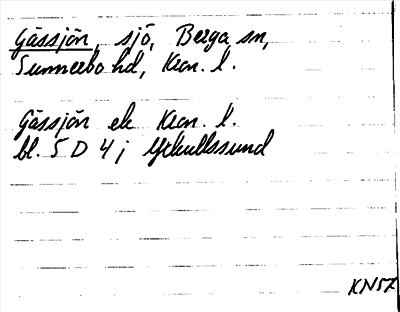 Gässjön, sjö, Berga sn,
Sunnerbo hd, Kron. l.
Gässjön ek Kron. l.
bl. 5 D 4 j Ytkullssund
KN57